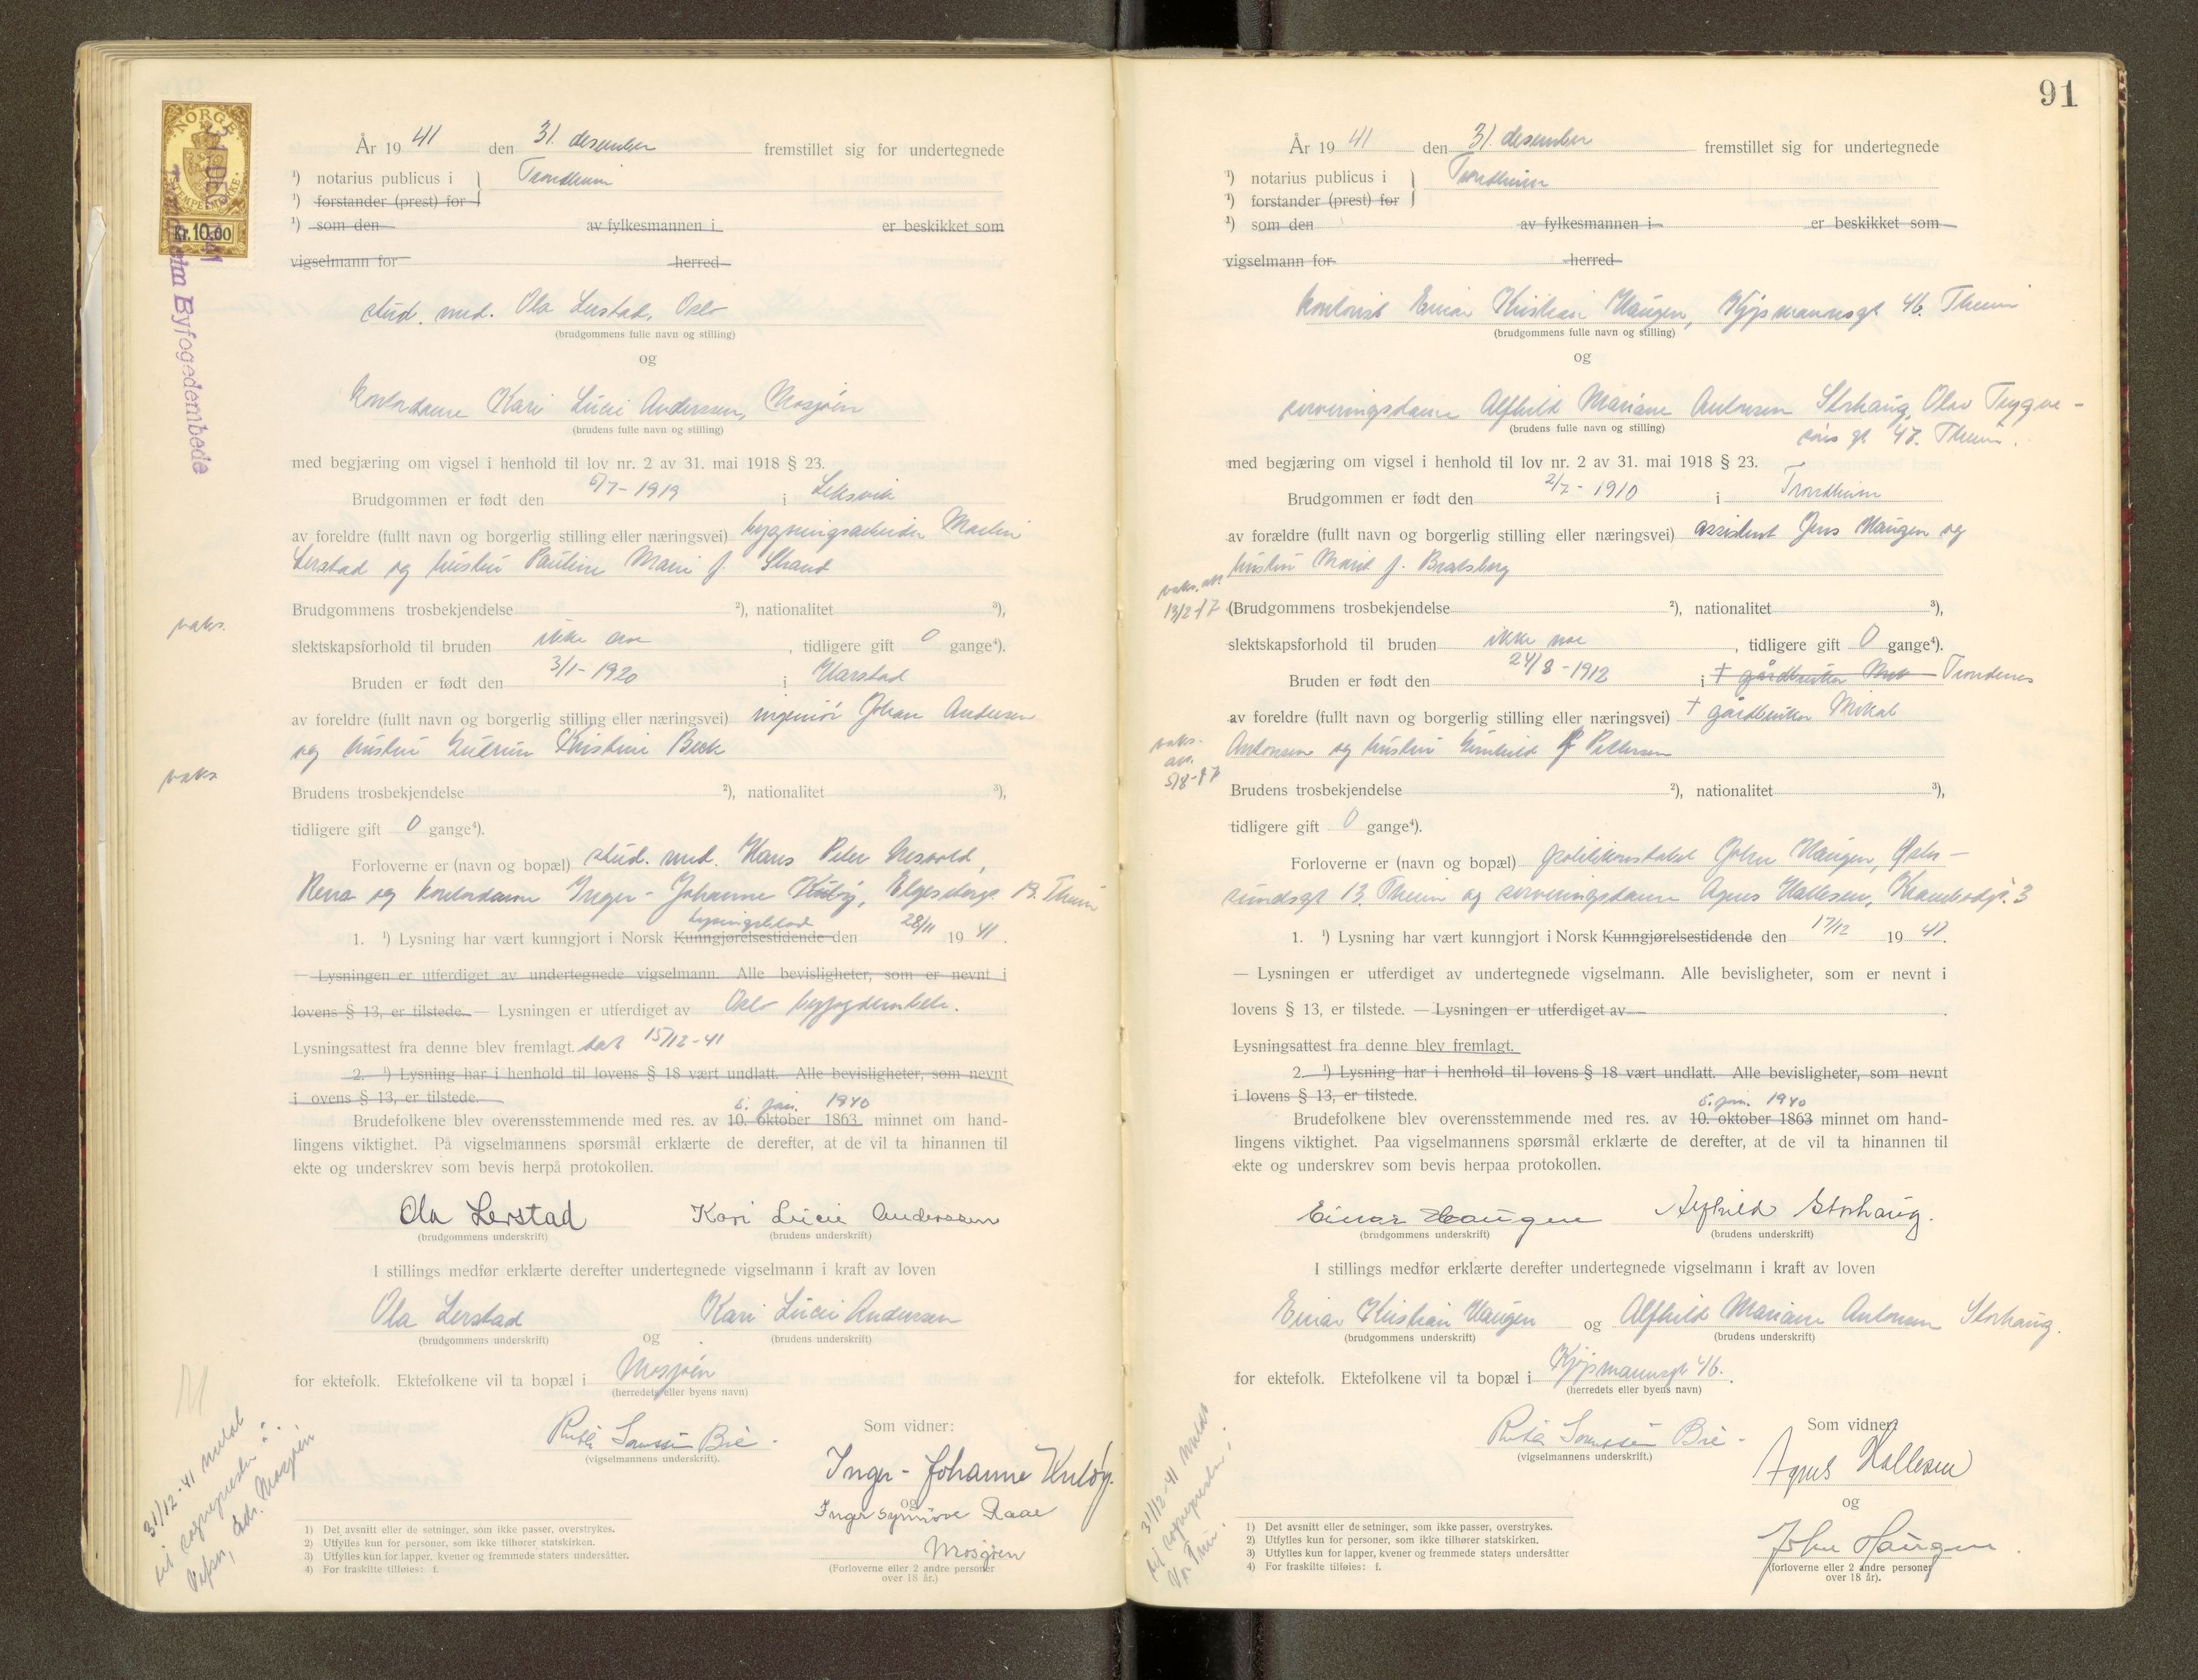 NORGE
STEMPELMERKE
Kr.10.00
31 DES 41
Trondheim Byfogedembede
År 1941 den 31. desember fremstillet sig for undertegnede
¹) notarius publicus i Trondheim
¹) forstander (prest) for
¹) som den av fylkesmannen i er beskikket som
vigselmann for herred
stud. med. Ola Lerstad, Oslo
(brudgommens fulle navn og stilling)
og
kontordame Kari Lucie Anderssen, Mosjøen
(brudens fulle navn og stilling)
med begjæring om vigsel i henhold til lov nr. 2 av 31. mai 1918 § 23.
Brudgommen er født den 6/7-1919 i Leksvik
av foreldre (fullt navn og borgerlig stilling eller næringsvei) bygningsarbeider Martin
Lerstad og hustru Pauline Marie f. Strand
Brudgommens trosbekjendelse ²), nationalitet ³),
vaks.
slektskapsforhold til bruden ikke , tidligere gift 0 gange⁴).
Bruden er født den 3/1-1920 i Harstad
av foreldre (fullt navn og borgerlig stilling eller næringsvei) ingeniør Johan Andersen
og hustru Gudrun Kristine Beck
vaks
Brudens trosbekjendelse ²), nationalitet ³),
tidligere gift 0 gange⁴).
Forloverne er (navn og bopæl) stud. med. Hans Peter
Rena og kontordame Inger-Johanne Kuløy, Elgesetergt. 13. Theim
lysingsblad
1. ¹) Lysning har vært kunngjort i Norsk Kunngjørelsestidende den 28/11 1941.
— Lysningen er utferdiget av undertegnede vigselmann. Alle bevisligheter, som er nevnt i
lovens § 13, er tilstede. — Lysningen er utferdiget av Oslo byfogdembete.
Lysningsattest fra denne blev fremlagt. dat 15/12-41
2. ¹) Lysning har i henhold til lovens § 18 vært undlatt. Alle bevisligheter, som nevnt
i ovens § 13, er tilstede.
5. jan. 1940
Brudefolkene blev overensstemmende med res. av 10. oktober 1863 minnet om hand-
lingens viktighet. På vigselmannens spørsmål erklærte de derefter, at de vil ta hinannen til
ekte og underskrev som bevis herpå protokollen.
Ola Lerstad Kari Lucie Anderssen
(brudgommens underskrift) (brudens underskrift)
I stillings medfør erklærte derefter undertegnede vigselmann i kraft av loven
Ola Lerstad og Kari Lucie Andersen
(brudgommens underskrift) (brudens underskrift)
for ektefolk. Ektefolkene vil ta bopæl i Mosjøen
(herredets eller byens navn)
Som vidner:
Ruth Bie.
(vigselmannens underskrift).
Inger-Johanne Kuløy.
og
Inger Synnøve Raae
Mosjøen
(Forloverne eller 2 andre personer
over 18 år.)
31/12-41 meldt
til sognepresten i
Vefsn, adr. Mosjøen
1) Det avsnitt eller de setninger, som ikke passer, overstrykes.
2) Utfylles kun for personer, som ikke tilhører statskirken.
3) Utfylles kun for lapper, kvener og fremmede staters undersåtter.
4) For fraskilte tilføies: f.
91
År 1941 den 31. desember fremstillet sig for undertegnede
¹) notarius publicus i Trondheim
¹) forstander (prest) for
¹) som den av fylkesmannen i er beskikket som
vigselmann for herred
kontorist Einar Kristian Haugen, Kjøpmannsgt 46. Theim
(brudgommens fulle navn og stilling)
og
serveringsdame Alfhild Mariane Antonsen Storhaug, Olav Trygve-
(brudens fulle navn og stilling)
søns gt 47. Theim.
med begjæring om vigsel i henhold til lov nr. 2 av 31. mai 1918 § 23.
Brudgommen er født den 2/7-1910 i Trondheim
av forældre (fullt navn og borgerlig stilling eller næringsvei) assistent Jens Haugen og
hustru Marit f. Bratsberg
vaks. att.
13/2-17
Brudgommens trosbekjendelse ²), nationalitet ³),
slektskapsforhold til bruden ikke noe , tidligere gift 0 gange⁴).
Bruden er født den 24/8-1912 i † gårdbruker Trondenes
av foreldre (fullt navn og borgerlig stilling eller næringsvei) † gårdbruker Mikal
Antonsen og hustru Gunhild f Pettersen
vaks.
att.
Brudens trosbekjendelse ²), nationalitet ³),
tidligere gift 0 gange⁴).
Forloverne er (navn og bopæl) politikonstabel John Haugen,
sundsgt 13. Theim og serveringsdame Agnes Hallesen, Krambodgt. 3
1. ¹) Lysning har vært kunngjort i Norsk Kunngjørelsestidende den 17/12 1941.
— Lysningen er utferdiget av undertegnede vigselmann. Alle bevisligheter, som er nevnt i
lovens § 13, er tilstede. — Lysningen er utferdiget av
Lysningsattest fra denne blev fremlagt.
2. ¹) Lysning har i henhold til lovens § 18 vært undlatt. Alle bevisligheter, som nevnt
i lovens § 13, er tilstede.
5. jan. 1940
Brudefolkene blev overensstemmende med res. av 10. oktober 1863 minnet om hand-
lingens viktighet. Paa vigselmannens spørsmål erklærte de derefter, at de vil ta hinannen til
ekte og underskrev som bevis herpaa protokollen.
Einar Haugen Alfhild Storhaug.
(brudgommens underskrift) (brudens underskrift)
I stillings medfør erklærte derefter undertegnede vigselmann i kraft av loven
Einar Kristian Haugen og Alfhild Mariane Antonsen Storhaug.
(brudgommens underskrift) (brudens underskrift)
for ektefolk. Ektefolkene vil ta bopæl i Kjøpmannsgt 46.
(herredets eller byens navn)
Som vidner:
Ruth Bie.
(vigselmannens underskrift.)
Agnes Hallesen
og
John Haugen.
(forloverne eller 2 andre personer
over 18 år).
31/12-41 meldt
til sognepresten i
1) Det avsnitt eller de setninger, som ikke passer, overstrykes.
2) Utfylles kun for personer, som ikke tilhører statskirken.
3) Utfylles kun for lapper, kvener og fremmede staters undersåtter
4) For fraskilte tilføies: f.